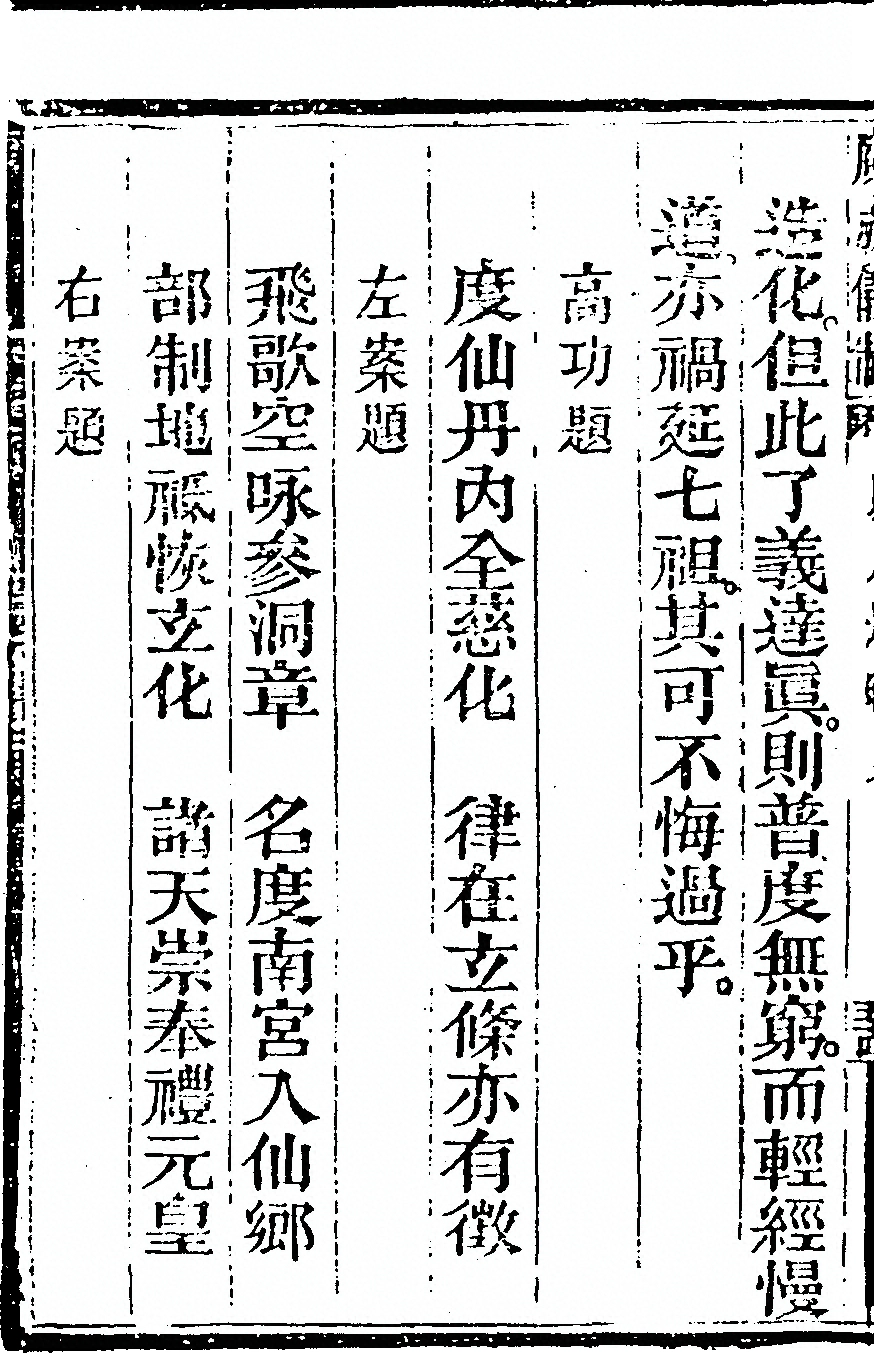 造化。但此了義達眞。則普度無窮。而輕經慢
道。亦禍延七祖。其可不悔過乎。
高功題
度仙丹內全慈化　律在立條亦有徵
左案題
飛歌空咏參洞章　名度南宮入仙鄉
部制地祇恢立化　諸天崇奉禮元皇
右案題